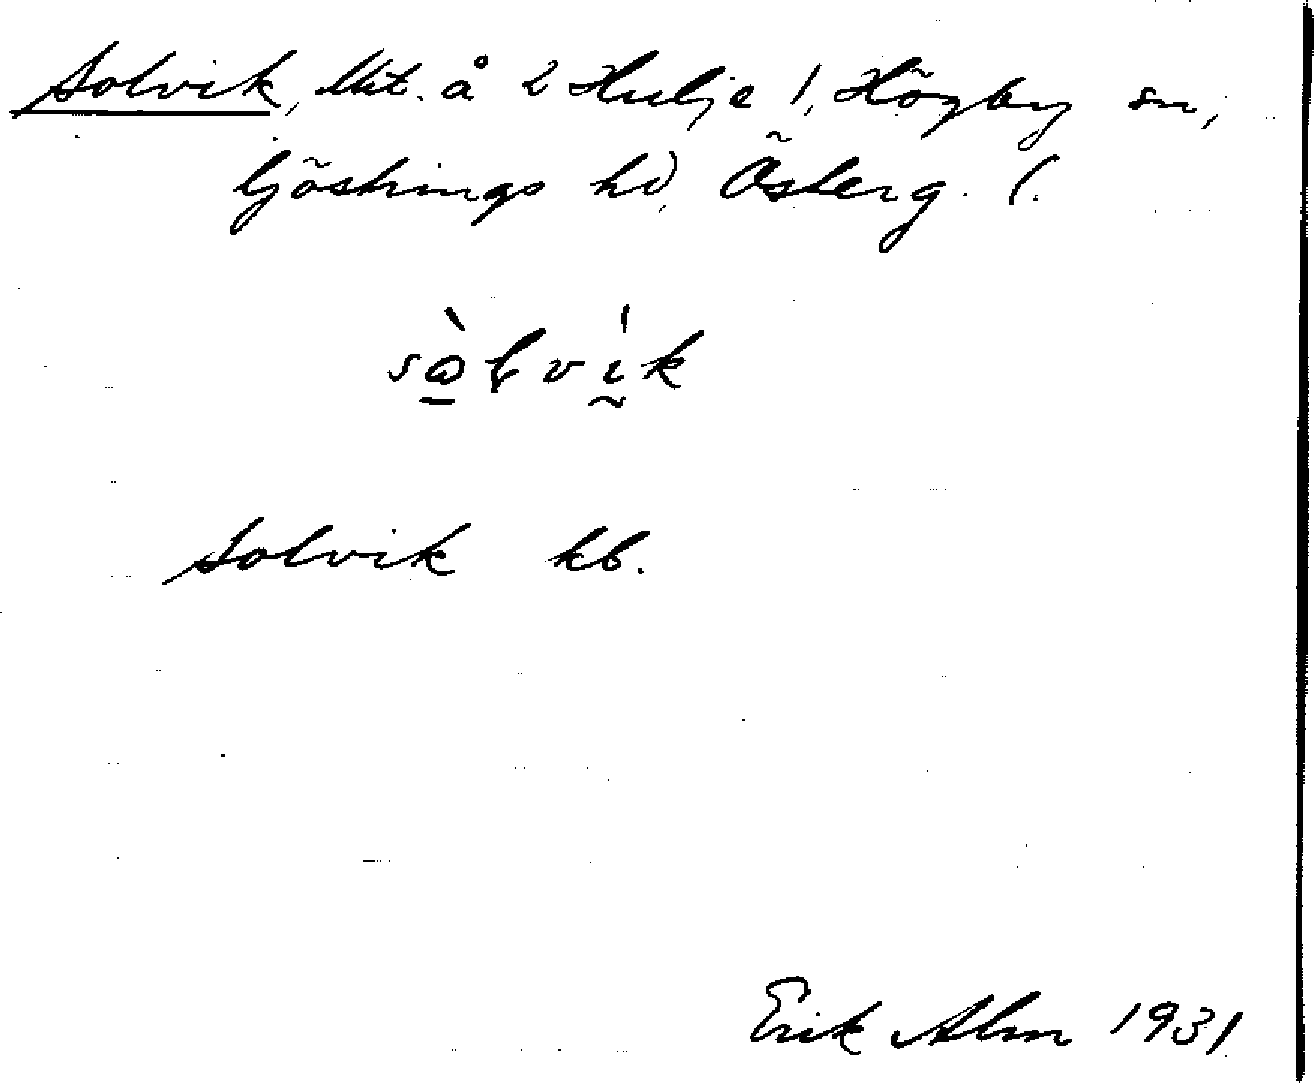 Solvik, lht. å 2 Hulje /, Högby sn,
Göstrings hd, Österg. l.
Solvik kb.
Erik Alm 1931